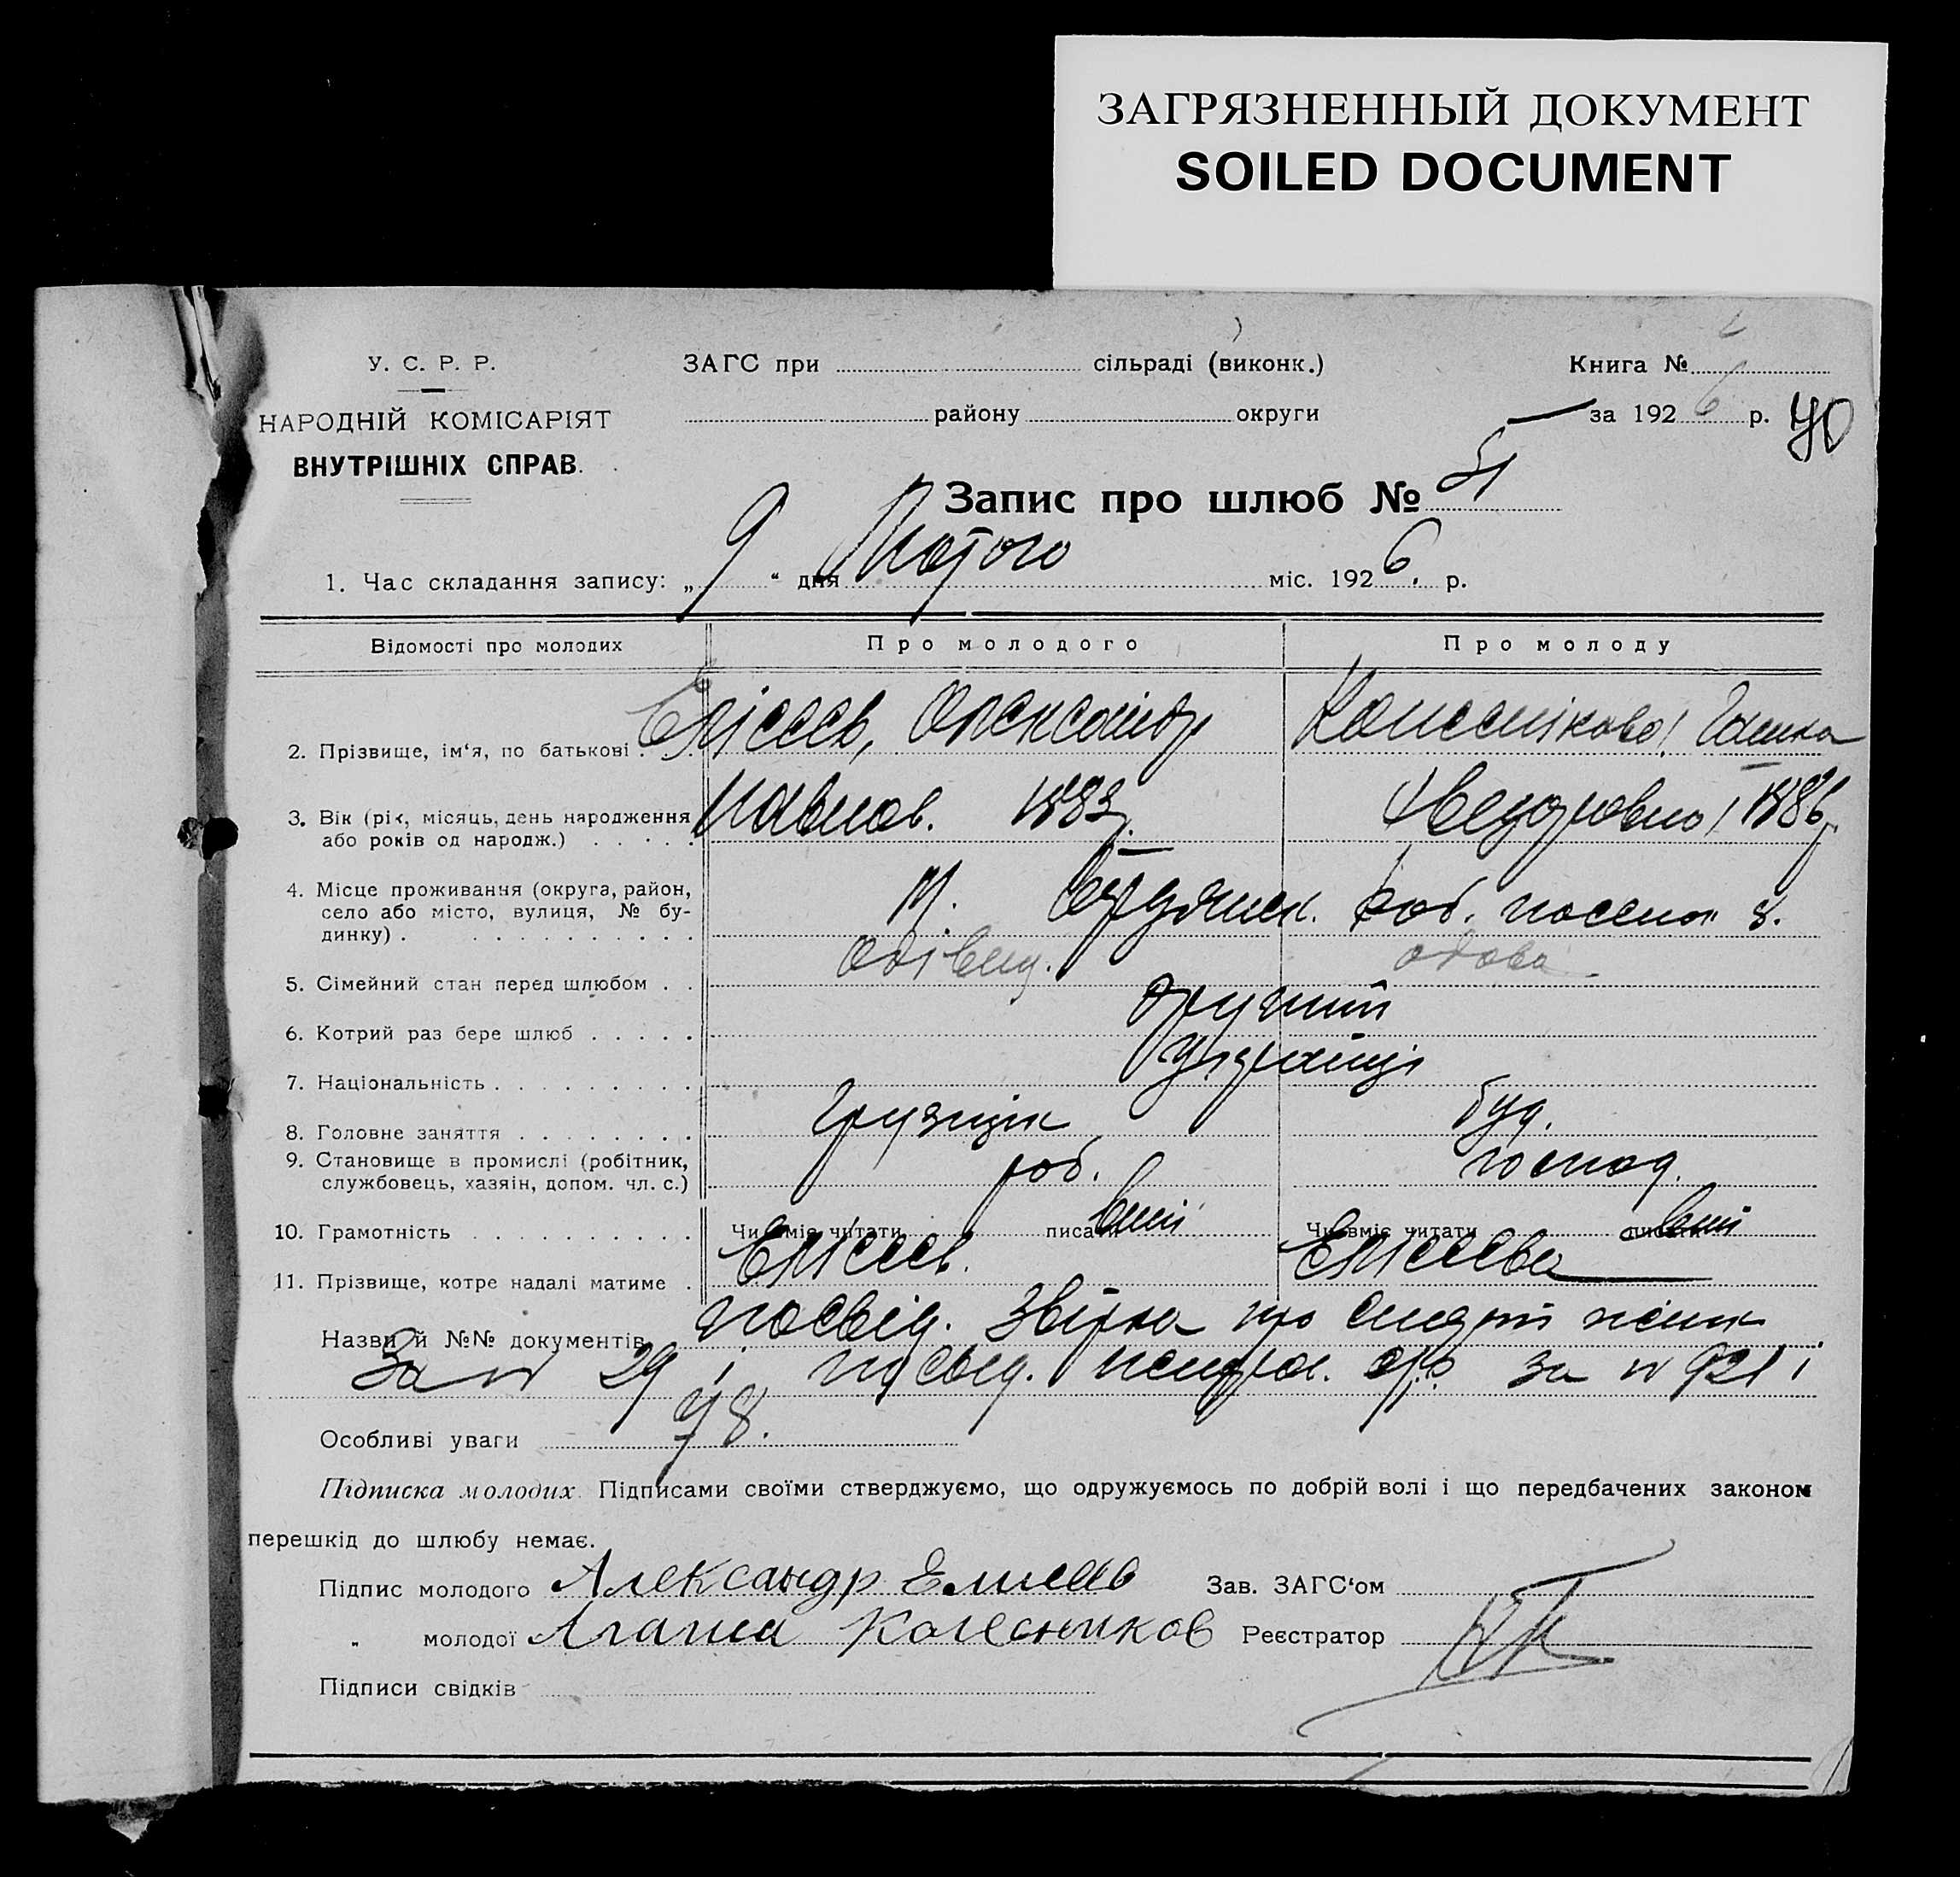 ЗАГРЯЗНЕННЫЙ ДОКУМЕНТ
SOILED DOCUMENT
У. С. Р. Р.
НАРОДНІЙ КОМІСАРІЯТ
ВНУТРІШНІХ СПРАВ.
ЗАГС при сільраді (виконк.)
району округи
Книга №
за 1926 р. 40
Запис про шлюб № 51
1. Час складання запису: „ 9 “ дня Лютого міс. 1926. р.
Відомості про молодих Про молодого Про молоду
2. Прізвище, ім'я, по батькові . . . Єлісеєв, Олександр Колеснікова
3. Вік (рік, місяць, день народження або років од народж.) . . . . . Павлов. 1883 р. 1886 р.
4. Місце проживання (округа, район, село або місто, вулиця, № будинку) . . . . . . . . . . . М. Бердянськ. Роб. 8.
5. Сімейний стан перед шлюбом . . одова
6. Котрий раз бере шлюб . . . . . другий
7. Національність . . . . . . . . . українці
8. Головне заняття . . . . . . . . грузщик
9. Становище в промислі (робітник, службовець, хазяїн, допом. чл. с.) роб. господ.
10. Грамотність . . . . . . . . . . Чи вміє читати писати вміє Чи вміє читати писати вміє
11. Прізвище, котре надалі матиме . Єлісеєв. Єлісеєва
Назви й №№ документів посвід. про смерть жінки
За № 29 і посвід. за № 921 і
Особливі уваги 48.
Підписка молодих. Підписами своїми стверджуємо, що одружуємось по добрій волі і що передбачених законом
перешкід до шлюбу немає.
Підпис молодого Александр Елисеев Зав. ЗАГС'ом
„ молодої Агапия Колесников Реєстратор
Підписи свідків